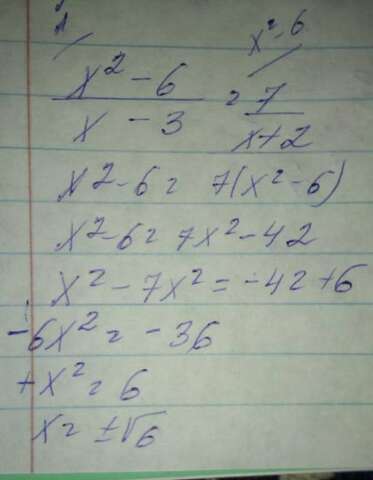 1 x²-6
x²-6 / x-3 = 7 / x+2
x²-6 = 7(x²-6)
x²-6 = 7x²-42
x²-7x² = -42+6
-6x² = -36
+x² = 6
x = ±√6